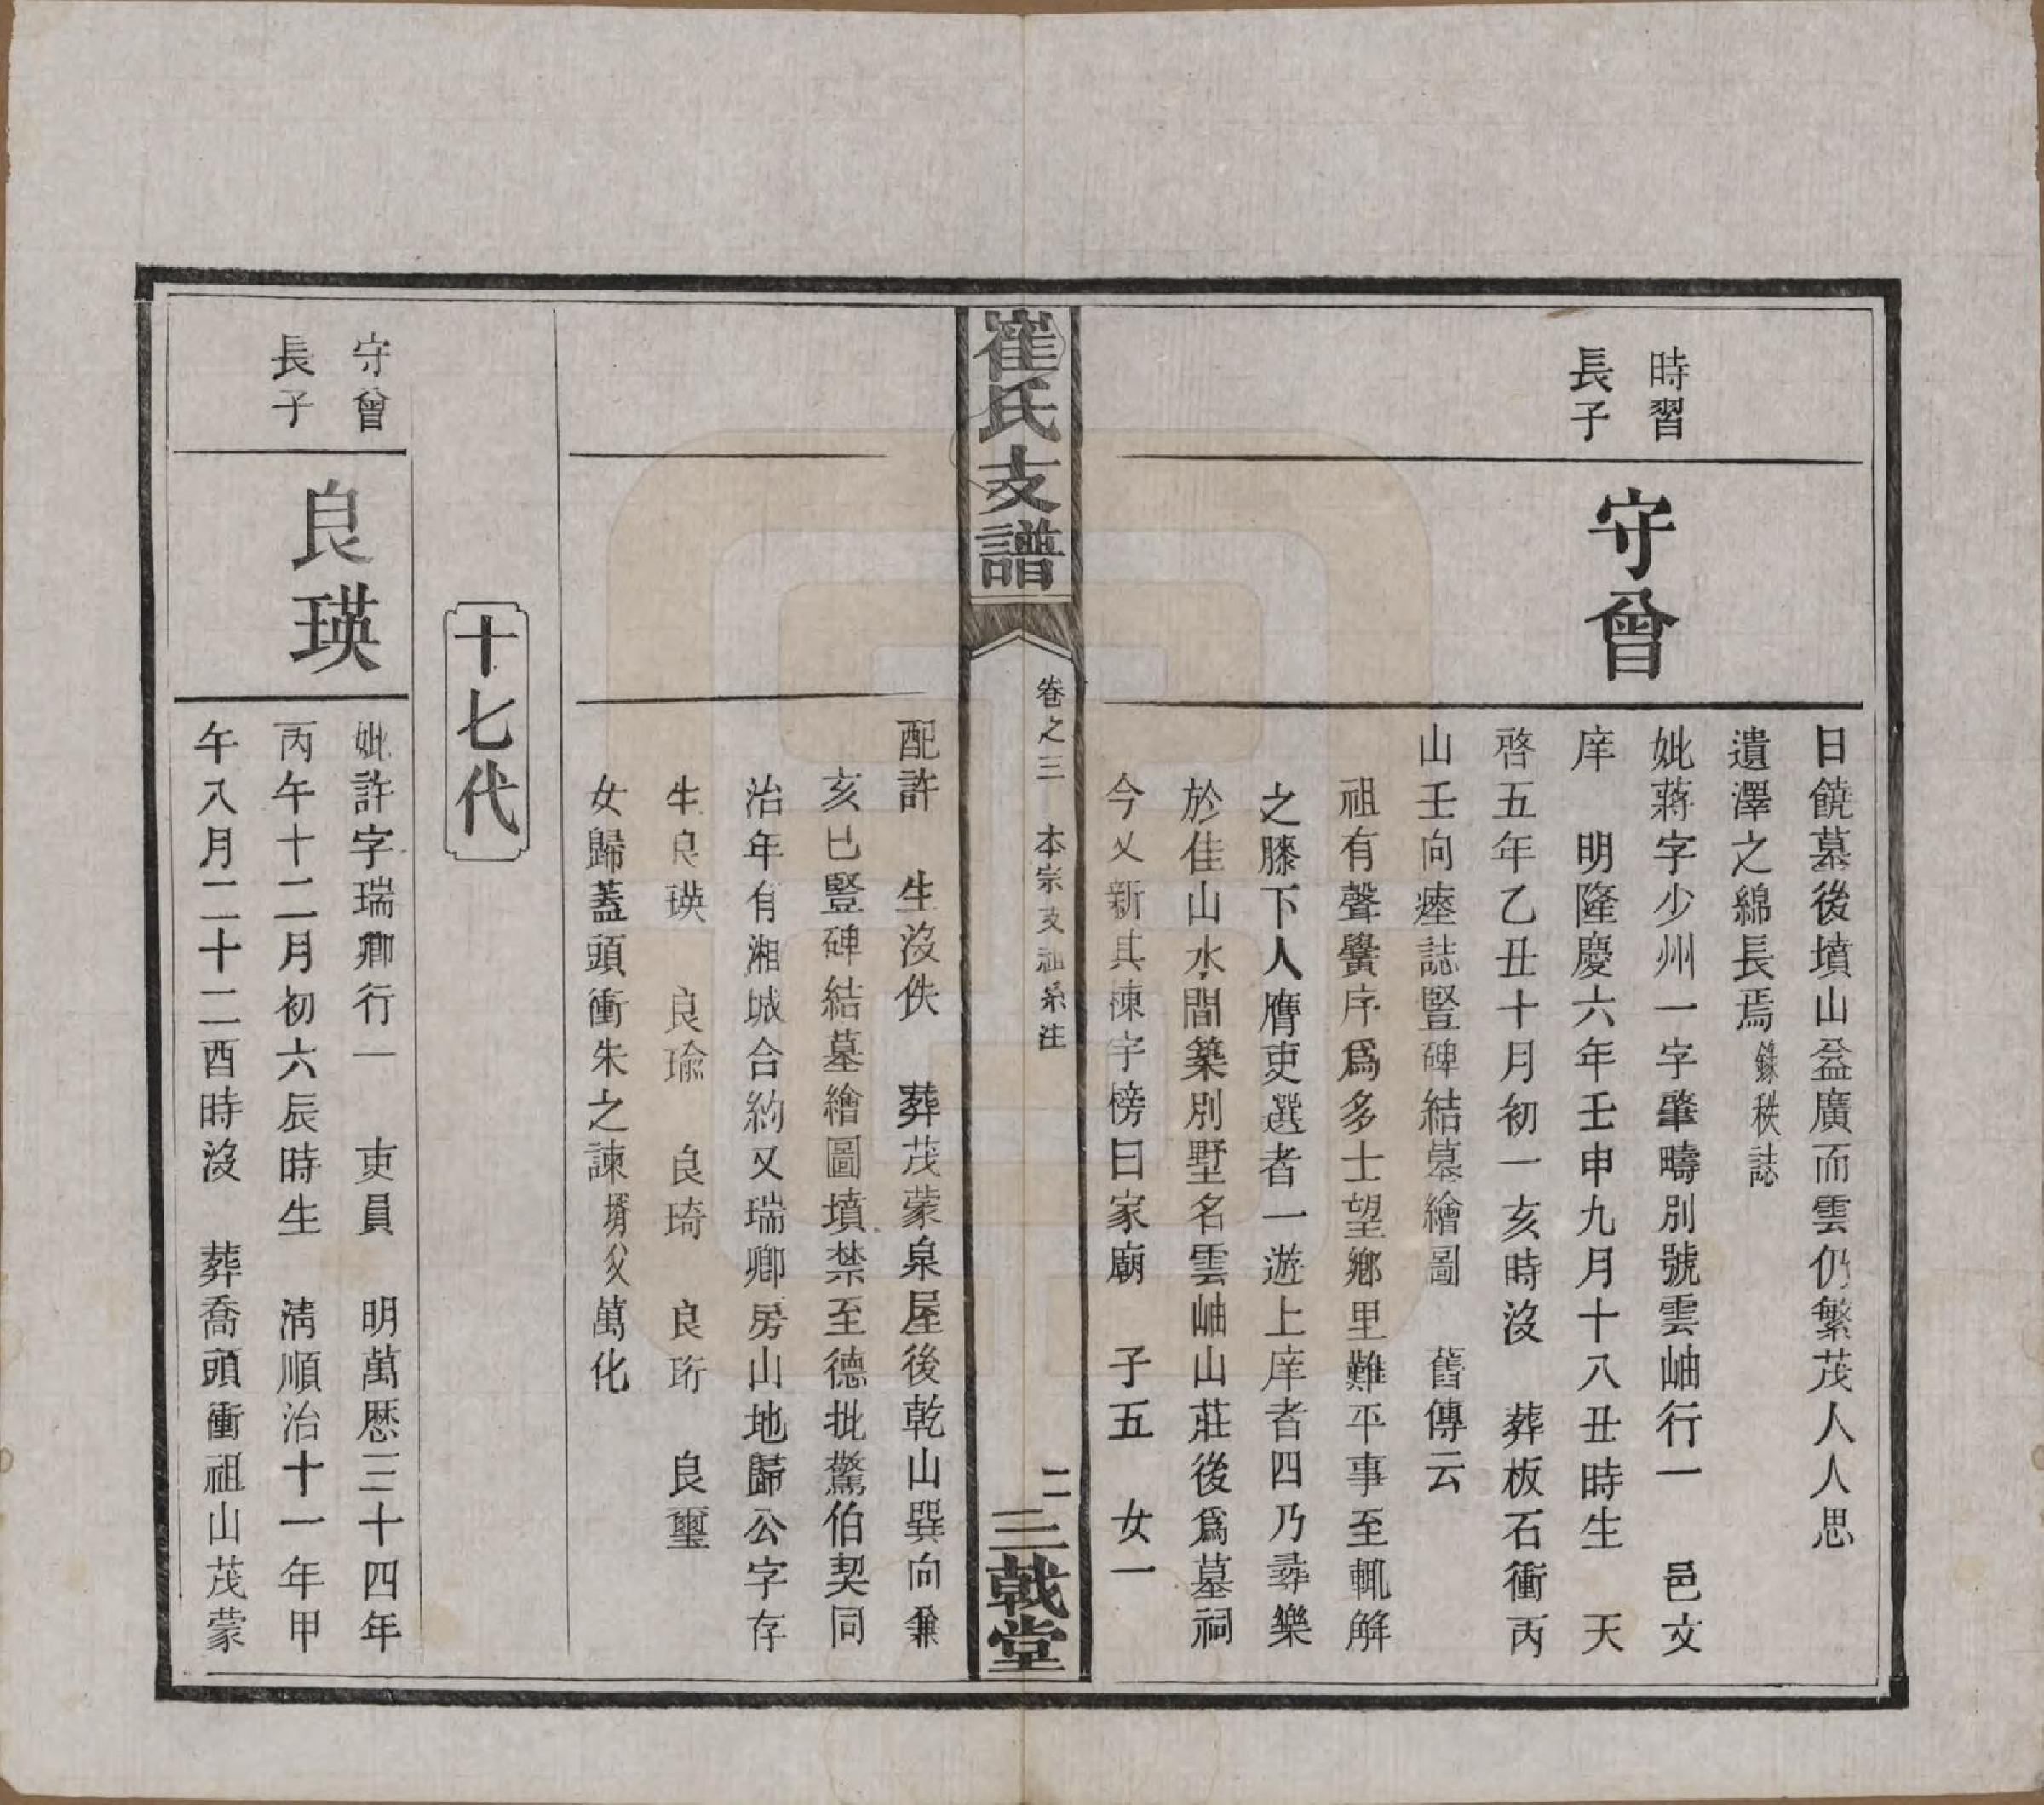 日饒墓後墳山益廣而雲仍繁茂人人思
遺澤之綿長焉錄秩誌
時習
長子
守曾
妣蔣字少州一字肇疇別號雲岫行一　邑文
庠　明隆慶六年壬申九月十八丑時生　天
啓五年乙丑十月初一亥時沒　葬板石衝丙
山壬向瘞誌豎碑結墓繪圖　舊傳云
祖有聲黌序爲多士望鄉里難平事至輒解
之膝下人膺吏選者一遊上庠者四乃尋樂
於佳山水間築別墅名雲岫山莊後爲墓祠
今乂新其棟宇榜曰家廟　子五　女一
崔氏支譜
卷之三　本宗支派系注
二
三戟堂
配許　生沒佚　葬茂蒙泉屋後乾山巽向兼
亥巳豎碑結墓繪圖墳禁至德批驚伯契同
治年有湘城合約又瑞卿房山地歸公字存
生良瑛　良瑜　良琦　良珩　良璽
女歸蓋頭衝朱之諫壻父萬化
十七代
守曾
長子
良瑛
妣許字瑞卿行一　吏員　明萬歷三十四年
丙午十二月初六辰時生　清順治十一年甲
午八月二十二酉時沒　葬喬頭衝祖山茂蒙